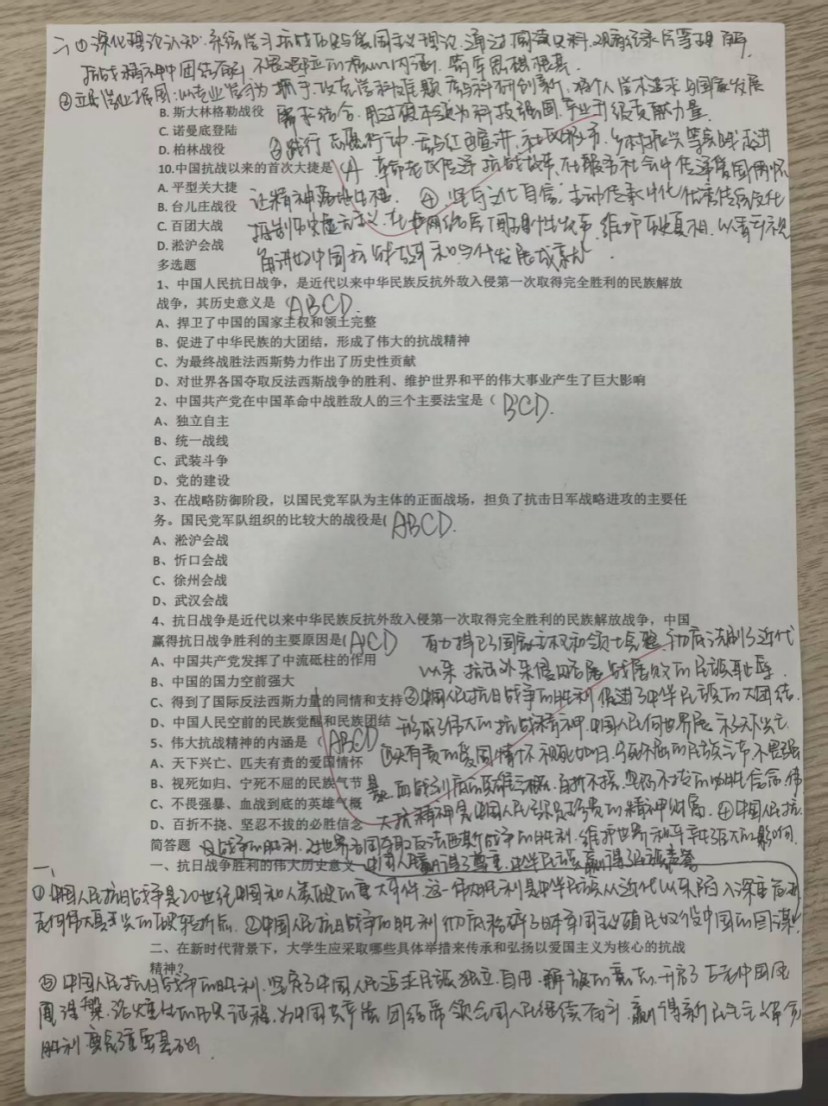 二、①深化理论认知:系统学习抗战历史与爱国主义理论,通过阅读史料、观看纪录片等理解
抗战精神中团结奋斗、不畏
②立足学业报国:以专业学习为抓手,攻克学科难题,参与科研创新,将个人学术追求与国家发展
B. 斯大林格勒战役 需求结合,用过硬本领为科技强国、产业升级贡献力量.
C. 诺曼底登陆
D. 柏林战役 ③践行志愿行动:参与红色宣讲、社区服务、乡村振兴等实践,走进
10.中国抗战以来的首次大捷是(A 革命老区传播抗战故事,在服务社会中传递爱国情怀
A. 平型关大捷 让精神落地生根.
B. 台儿庄战役 ④坚守文化自信:主动传承中华优秀传统文化
C. 百团大战 抵制历史虚无主义,在网络后 维护历史真相,以青年视
D. 淞沪会战 角讲好中国抗战故事和当代发展成就
多选题
1、中国人民抗日战争,是近代以来中华民族反抗外敌入侵第一次取得完全胜利的民族解放
战争,其历史意义是(ABCD.
A、捍卫了中国的国家主权和领土完整
B、促进了中华民族的大团结,形成了伟大的抗战精神
C、为最终战胜法西斯势力作出了历史性贡献
D、对世界各国夺取反法西斯战争的胜利、维护世界和平的伟大事业产生了巨大影响
2、中国共产党在中国革命中战胜敌人的三个主要法宝是(BCD.
A、独立自主
B、统一战线
C、武装斗争
D、党的建设
3、在战略防御阶段,以国民党军队为主体的正面战场,担负了抗击日军战略进攻的主要任
务。国民党军队组织的比较大的战役是(ABCD.
A、淞沪会战
B、忻口会战
C、徐州会战
D、武汉会战
4、抗日战争是近代以来中华民族反抗外敌入侵第一次取得完全胜利的民族解放战争,中国
赢得抗日战争胜利的主要原因是(ACD 有力捍卫了国家主权和领土完整,彻底洗刷了近代
A、中国共产党发挥了中流砥柱的作用 以来抗击外来侵略屡战屡败的民族耻辱.
B、中国的国力空前强大
C、得到了国际反法西斯力量的同情和支持 ③中国人民抗日战争的胜利,促进了中华民族的大团结.
D、中国人民空前的民族觉醒和民族团结 形成了伟大的抗战精神.中国人民向世界展
5、伟大抗战精神的内涵是(ABCD 匹夫有责的爱国情怀,视死如归、宁死不屈的民族气节,不畏强
A、天下兴亡、匹夫有责的爱国情怀
B、视死如归、宁死不屈的民族气节 暴、血战到底的英雄气概,百折不挠、坚忍不拔的必胜信念,伟
C、不畏强暴、血战到底的英雄气概 大抗战精神是中国人民弥足珍贵的精神财富.④中国人民抗
D、百折不挠、坚忍不拔的必胜信念
简答题 日战争的胜利,对世界各国夺取反法西斯战争的胜利、维护世界和平产生巨大影响.
一、抗日战争胜利的伟大历史意义 中国人民赢得了尊重,中华民族赢得了崇高声誉
一、
①中国人民抗日战争是20世纪中国和人类历史的重大事件,这一伟大胜利是中华民族从近代以来陷入深重危机
走向伟大复兴的历史转折点.②中国人民抗日战争的胜利彻底粉碎了日本军国主义殖民奴役中国的图谋.
二、在新时代背景下,大学生应采取哪些具体举措来传承和弘扬以爱国主义为核心的抗战
精神?
⑤中国人民抗日战争的胜利,坚定了中国人民追求民族独立、自由、解放的意志,开启了古老中国凤
凰涅槃、浴火重生的历史征程,为中国共产党团结带领全国人民继续奋斗,赢得新民主主义革命
胜利奠定重要基础.